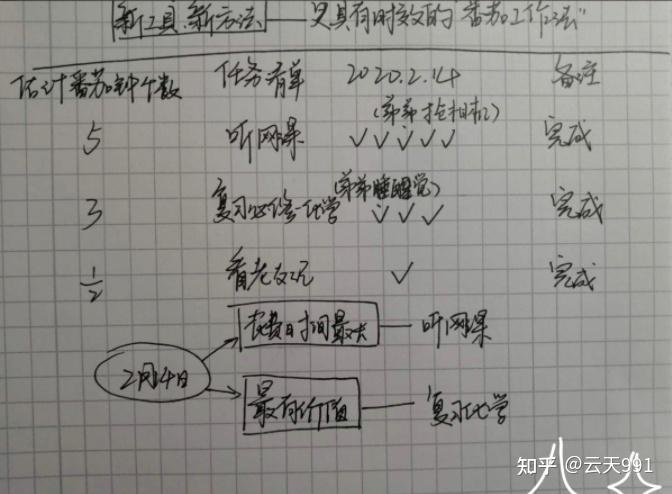 新工具、新方法——更具有时效的"番茄工作法"
估计番茄钟个数 任务清单 2020.2.14 备注
(弟弟抢相机)
5 听网课 ✓✓✓✓✓ 完成
(弟弟睡醒觉)
3 复习必修一化学 ✓✓✓ 完成
1/2 看老友记 ✓ 完成
花费时间最大——听网课
2月14日
最有价值——复习化学
知乎 @云天991